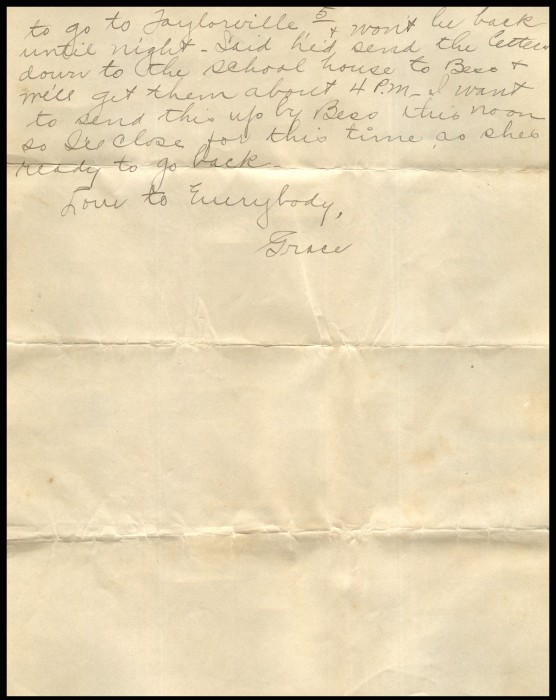 to go to Taylorville 5 & won't be back
until night - Said he'd send the letters
down to the school house to Bess &
we'll get them about 4 P.M. - I want
to send this up by Bess this noon
so I'll close for this time as shes
ready to go back
Love to Everybody,
Grace